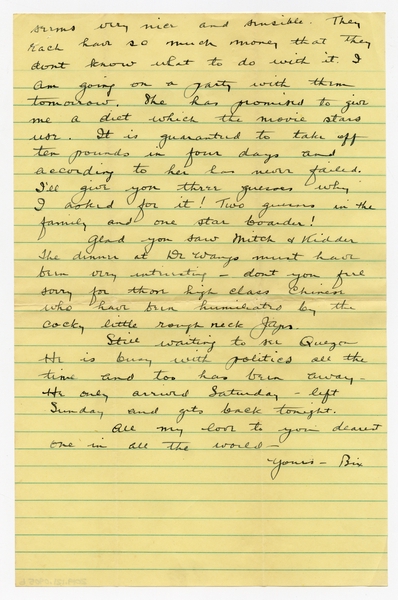 seems very nice and sensible. They
each have so much money that they
dont know what to do with it. I
am going on a party with them
tomorrow. She has promised to give
me a diet which the movie stars
use. It is guaranteed to take off
ten pounds in four days and
according to her has never failed.
I'll give you three guesses why
I asked for it! Two guesses in the
family and one star boarder!
Glad you saw Mitch & Kidder
The dinner at Dr Wangs must have
been very interesting - dont you feel
sorry for those high class Chinese
who have been humiliated by the
cocky little rough neck Japs.
Still waiting to see Quezon
He is busy with politics all the
time and too has been away -
He only arrived Saturday - left
Sunday and gets back tonight.
All my love to you dearest
one in all the world -
Yours - Bix